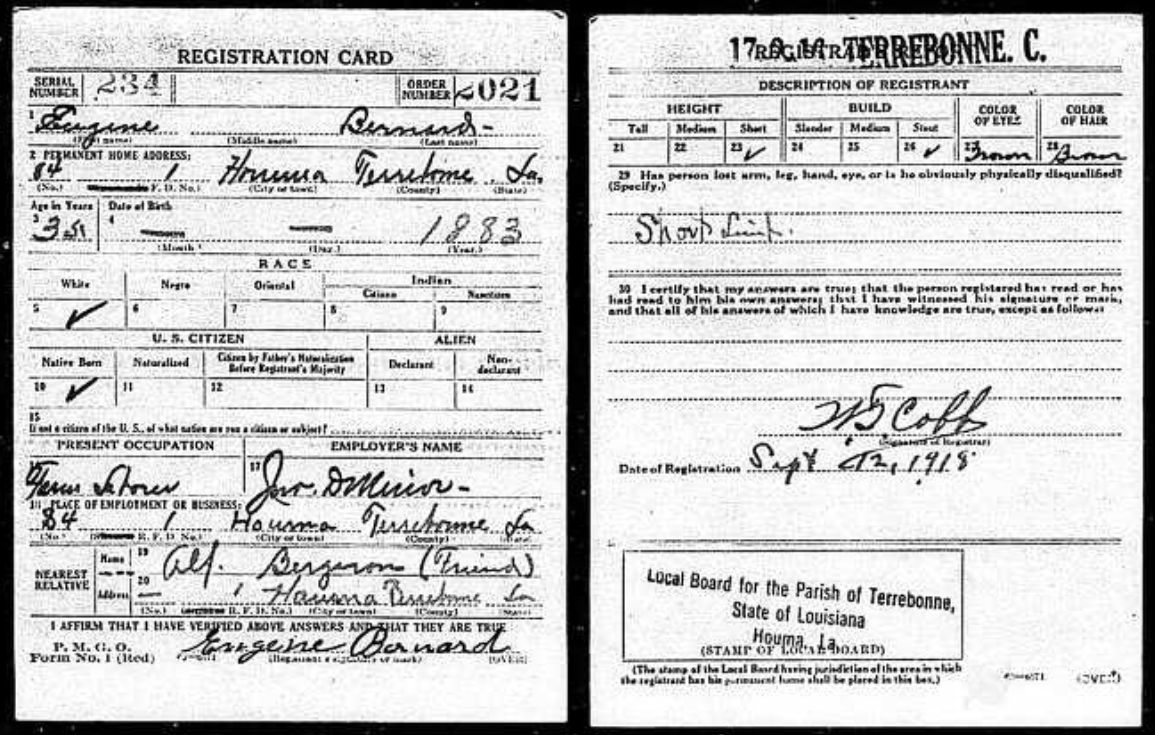 REGISTRATION CARD
SERIAL NUMBER 234 ORDER NUMBER 2021
1 Eugene Bernard-
(First name) (Middle name) (Last name)
2 PERMANENT HOME ADDRESS:
84 1 Houma Terrebonne La.
(No.) F. D. No.) (City or town) (County) (State)
Age in Years Date of Birth
3 35 4 1883
(Month) (Day.) (Year.)
RACE
White Negro Oriental Indian
Citizen Noncitizen
5 ✓ 6 7 8 9
U. S. CITIZEN ALIEN
Native Born Naturalized Citizen by Father's Naturalization Before Registrant's Majority Declarant Non-declarant
10 ✓ 11 12 13 14
15
If not a citizen of the U. S., of what nation are you a citizen or subject?
PRESENT OCCUPATION EMPLOYER'S NAME
17 Jno. D Minor-
18 PLACE OF EMPLOYMENT OR BUSINESS:
84 1 Houma Terrebonne La
(No.) R. F. D. No.) (City or town) (County) (State)
NEAREST RELATIVE Name 19 Alf. Bergeron (Friend)
Address 20 1 Houma Terrebonne La
(No.) R. F. D. No.) (City or town) (County) (State)
I AFFIRM THAT I HAVE VERIFIED ABOVE ANSWERS AND THAT THEY ARE TRUE
P. M. G. O.
Form No. 1 (Red) Eugeine Bernard
(Registrant's signature or mark) (OVER)
REGISTRAR'S REPORT
TERREBONNE. C.
DESCRIPTION OF REGISTRANT
HEIGHT BUILD COLOR OF EYES COLOR OF HAIR
Tall Medium Short Slender Medium Stout
21 22 23 ✓ 24 25 26 ✓ 27 Brown 28 Brown
29 Has person lost arm, leg, hand, eye, or is he obviously physically disqualified?
(Specify.)
Short Limb.
30 I certify that my answers are true; that the person registered has read or has
had read to him his own answers; that I have witnessed his signature or mark,
and that all of his answers of which I have knowledge are true, except as follows:
Cobb
(Signature of Registrar)
Date of Registration Sept 12, 1918
Local Board for the Parish of Terrebonne,
State of Louisiana
Houma, La.
(STAMP OF LOCAL BOARD)
(The stamp of the Local Board having jurisdiction of the area in which
the registrant has his permanent home shall be placed in this box.)
(OVER)